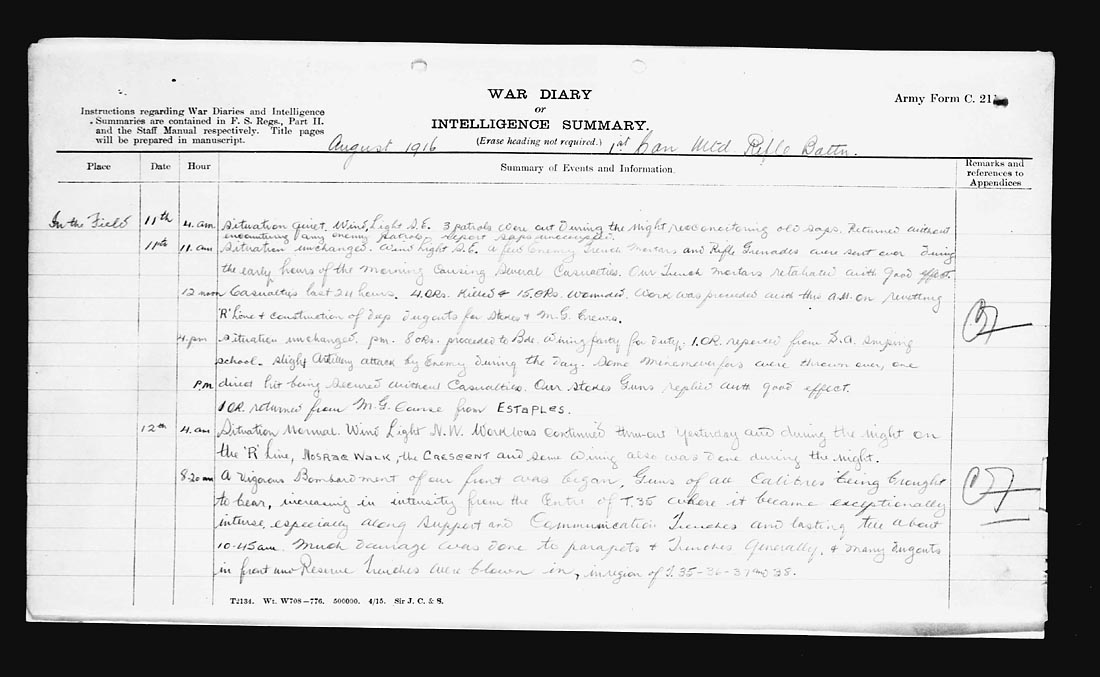 WAR DIARY
or
INTELLIGENCE SUMMARY.
(Erase heading not required.)
Army Form C. 21
Instructions regarding War Diaries and Intelligence
Summaries are contained in F. S. Regs., Part II.
and the Staff Manual respectively. Title pages
will be prepared in manuscript.
August 1916 1st Can Mtd Rifle Battn.
Place Date Hour Summary of Events and Information. Remarks and references to Appendices
In the Field 11th 4. am Situation quiet. Wind, Light S.E. 3 patrols were out During the night reconnoitering old saps. Returned without
encountering any enemy patrols, report saps unoccupied.
11th 11. am Situation unchanged. Wind Light S.E. A few Enemy Trench Mortars and Rifle Grenades were sent over During
the early hours of the morning causing Several Casualties. Our Trench Mortars retaliated with good effect.
12 noon Casualties last 24 hours. 4. ORs. Killed & 15. ORs. Wounded. Work was proceeded with this A.M. on revetting
'R' Line & construction of Deep Dugouts for Stokes & M.G. Crews.
4. pm Situation unchanged. pm. 8 ORs. proceeded to Bde. Wiring party for duty. 1. OR. reported from D.A. Sniping
school. Slight Artillery attack by Enemy During the Day. Some Minenwerfers were thrown over, one
P.M direct hit being Secured without Casualties. Our Stokes Guns replied with good effect.
1 OR. returned from M.G. Course from ESTAPLES.
12th 4. am Situation Normal. Wind Light N.W. Work was continued thru-out yesterday and during the night on
the 'R' Line, MOSRAC WALK, the CRESCENT and some Wiring also was Done during the night.
8.20 am A Vigorous Bombardment of our front was began, Guns of all Calibres being brought
to bear, increasing in intensity from the Centre of T.35 where it became exceptionally
intense, especially along Support and Communication Trenches and lasting till about
10-45 am. Much Damage was done to parapets & Trenches Generally, & many Dugouts
in front and Reserve Trenches were blown in, in region of T.35-36-37 and 38.
T2134. Wt. W708—776. 500000. 4/15. Sir J. C. & S.